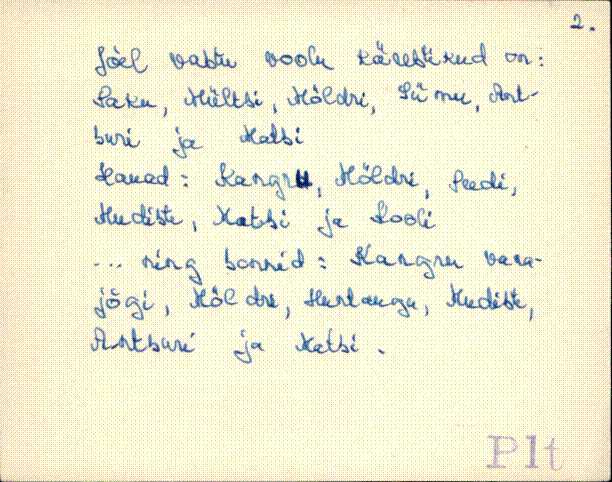 2.
Jõel vastu voolu kärestikud on:
Saku, Mültsi, Möldri, Sü mu, Art-
buri ja Matsi
Hauad: Kangru, Möldri, Seedi,
Mudiste, Matsi ja Kooli
... ning sonnid: Kangru vana-
jõgi, Möldri, Hurtaugu, Mudiste,
Artburi ja Matsi.
Plt